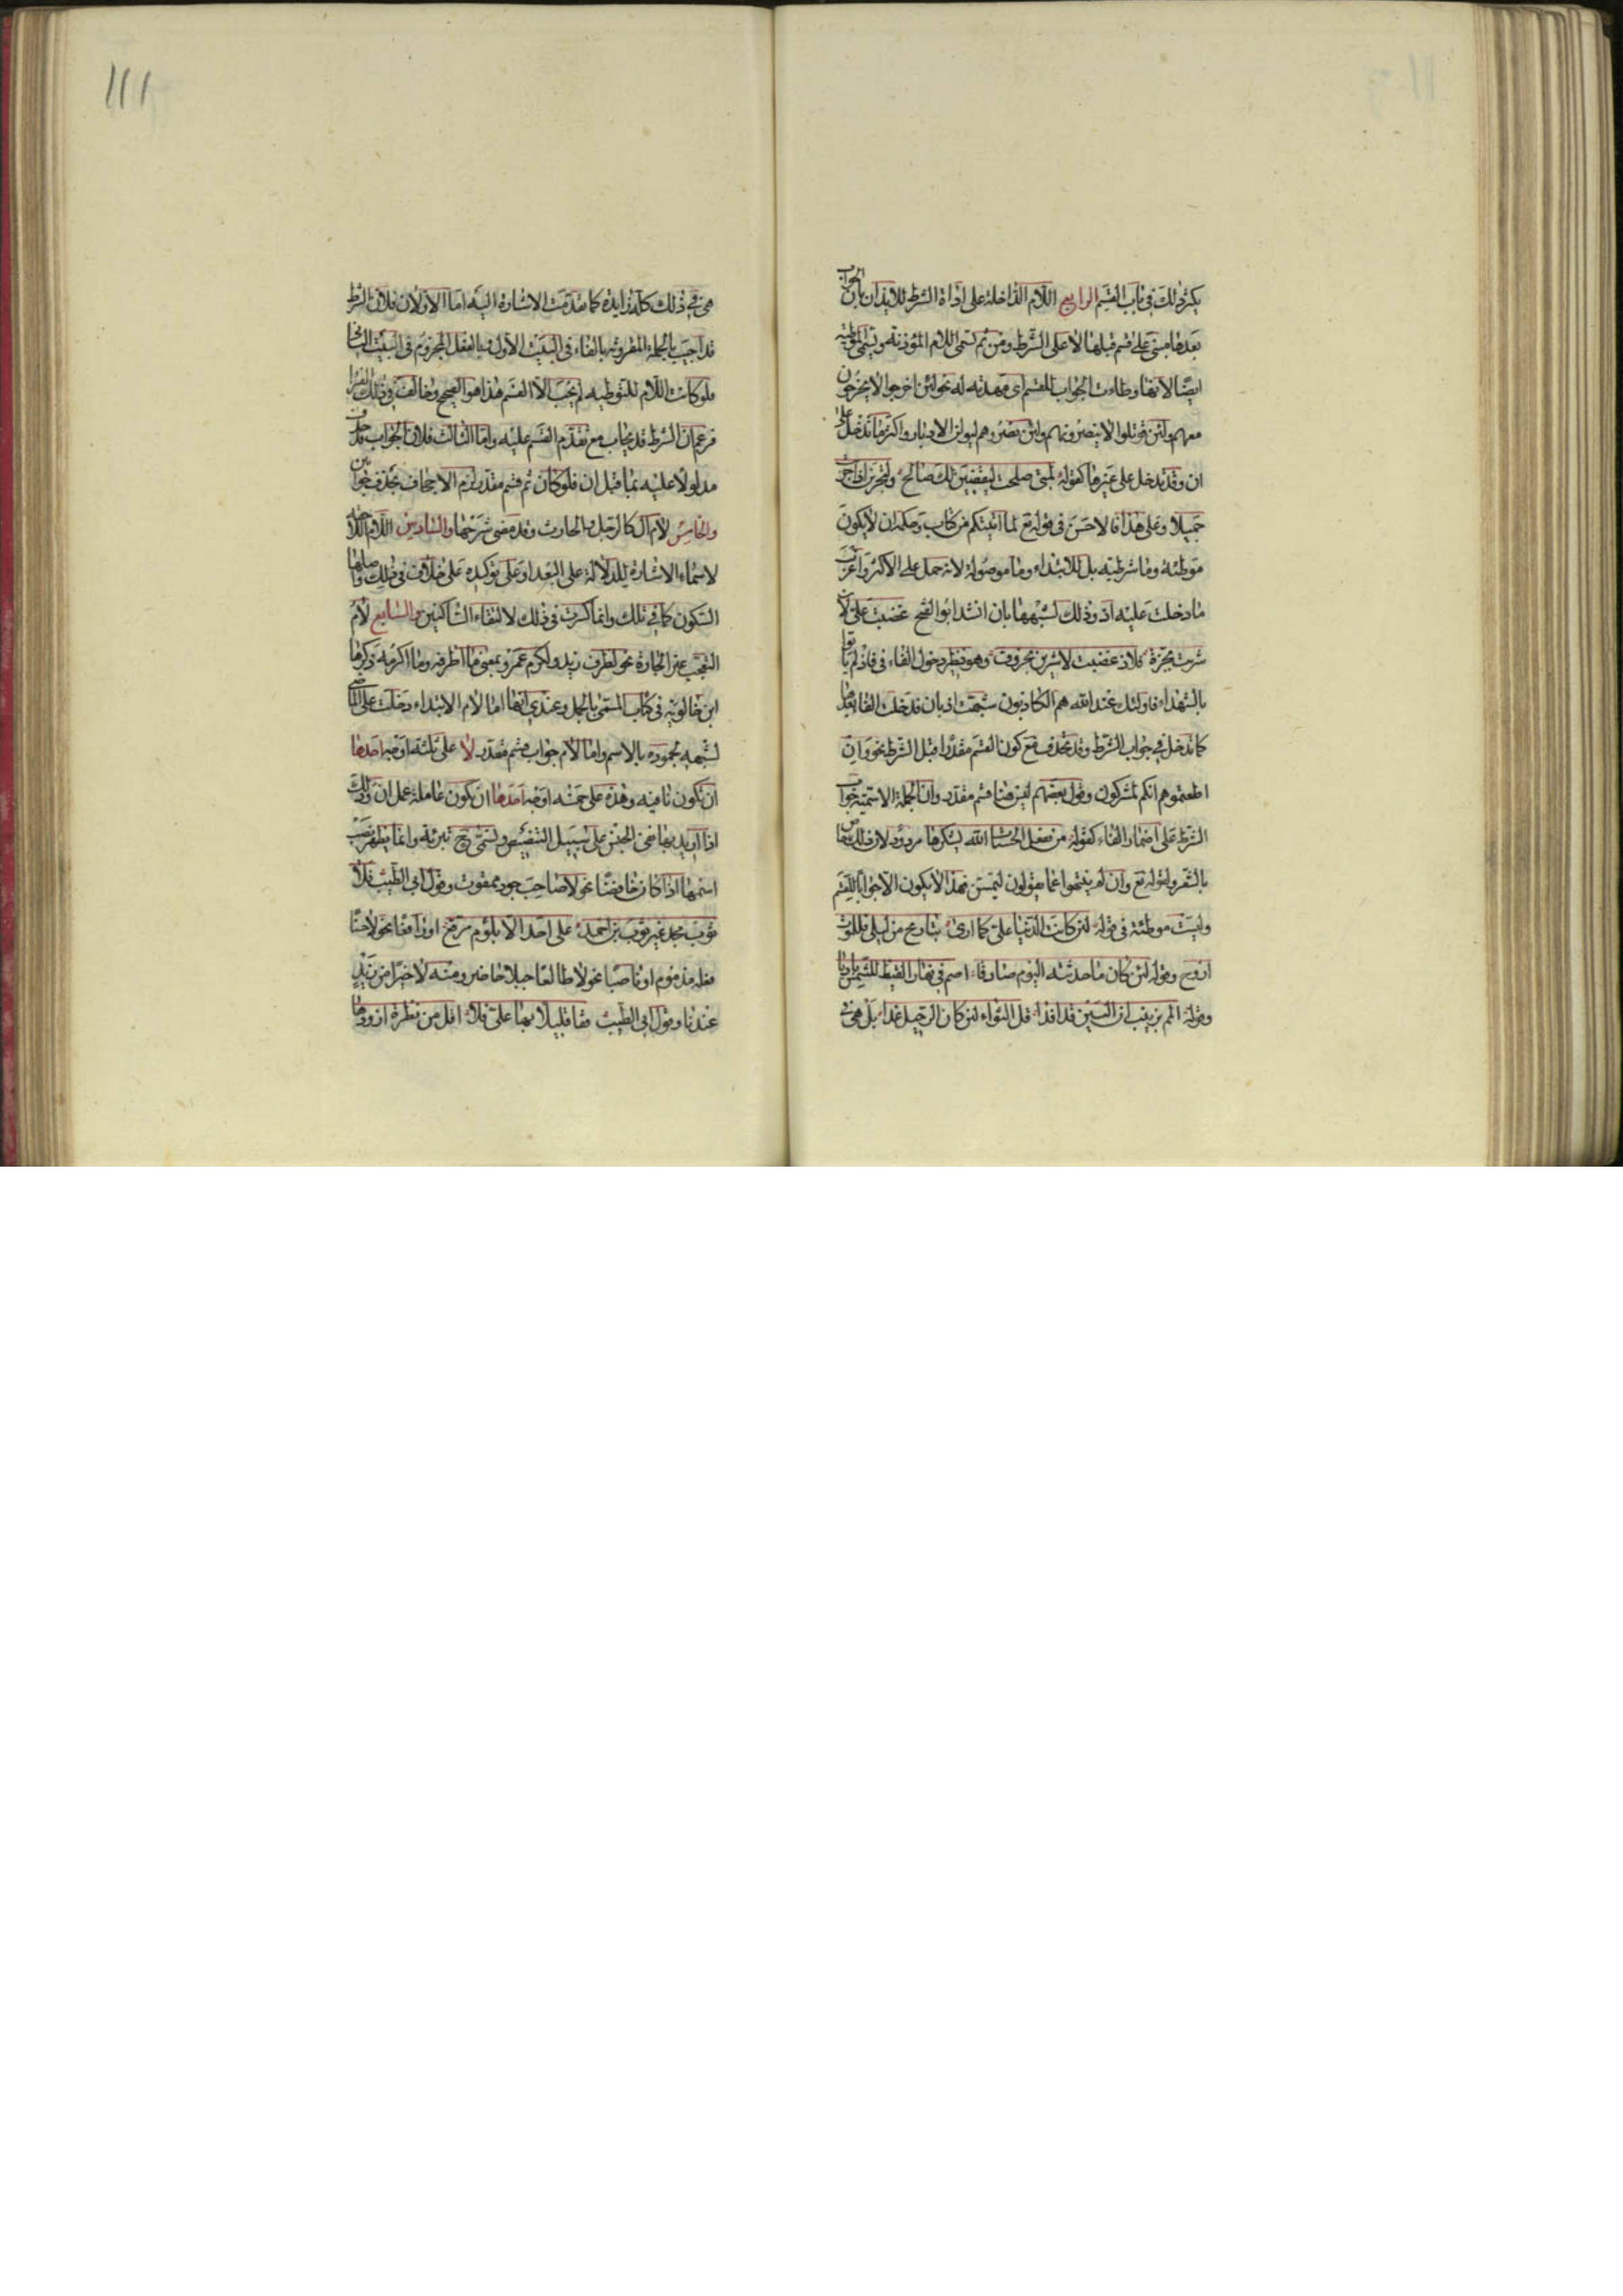 يكثر ذلك في باب القسم الرابع اللام الداخلة على اداة الشرط للايذان بان الجواب
بعدها مبني على قسم قبلها لا على الشرط ومن ثم تسمى اللام المؤذنة وتسمى الموطئة
ايضا لانها وطات الجواب للقسم اى مهدته له نحو لئن اخرجوا لا يخرجون
معهم ولئن قوتلوا لا ينصرونهم ولئن نصروهم ليولن الادبار واكثر ما تدخل على
ان وقد تدخل على غيرها كقوله لمتى صلحت ليقضين لك صالح ولتجزين اذا جزيت
جميلا وعلى هذا فالاحسن في قوله تع لما آتيتكم من كتاب وحكمة ان لا يكون
موطئة وما شرطية بل للابتداء وما موصولة لانه حمل على الاكثر واغرب
ما دخلت عليه اذ وذلك لشبهها بان انشد ابو الفتح غضبت على لان
شربت بجزة فلاذ غضبت لاشربن بخروف وهو نظير دخول الفاء في فاذ لم ياتوا
بالشهداء فاولئك عند الله هم الكاذبون شبهت اذ بان فدخلت الفا بعدها
كما تدخل في جواب الشرط وقد تحذف مع كون القسم مقدرا قبل الشرط نحو وان
اطعتموهم انكم لمشركون وقول بعضهم ليس هنا قسم مقدر وان الجملة الاسمية جواب
الشرط على اضمار الفاء كقوله من يفعل الحسنات الله يشكرها مردود لان ذلك خاص
بالشعر ولقوله تع وان لم ينتهوا عما يقولون ليمسن فهذا لا يكون الا جوابا للقسم
وليست موطئة في قوله لئن كانت الدنيا على كما ارى تباريح من ليلى فللموت
اروح وقوله لئن كان ما حدثته اليوم صادقا اصم في نهار القيظ للشمس باديا
وقوله المم بزينب ان البين قد افدا قل الثواء لئن كان الرحيل غدا بل هي في
هي في ذلك كله زايدة كما تقدمت الاشارة اليه اما الاولان فلان الشرط
قد اجيب بالجملة المقرونة بالفاء في البيت الاول وبالفعل المجزوم في البيت الثاني
فلو كانت اللام للتوطيه لم يجب الا القسم هذا هو الصحيح وخالف في ذلك الفراء
فزعم ان الشرط قد يجاب مع تقدم القسم عليه واما الثالث فلان الجواب قد حذف
مدلولا عليه بما قبل ان فلو كان ثم قسم مقدر لزم الاجحاف بحذف جوابين
والخامس لام ال كالرجل والحارث وقد مضى شرحها والسادس اللام اللاحقة
لاسماء الاشارة للدلالة على البعد او على توكيده على خلاف في ذلك واصلها
السكون كما في تلك وانما كسرت في ذلك لالتقاء الساكنين والسابع لام
التعجب غير الجارة نحو لظرف زيد ولكرم عمرو بمعنى ما اظرفه وما اكرمه ذكرها
ابن خالويه في كتاب المسمى بالجمل وعندي انها اما لام الابتداء دخلت على الماضي
لشبهه بجموده بالاسم واما لام جواب قسم مقدر لا على ثلثة اوجه احدها
ان تكون نافيه وهذه على خمسه اوجه احدها ان تكون عاملة عمل ان وذلك
اذا اريد بها نفى الجنس على سبيل التنصيص وتسمى ح تبرئة وانما يظهر نصب
اسمها اذا كان خافضا نحو لا صاحب جود ممقوت وقول ابي الطيب فلا
ثوب مجد غير ثوب بن احمد على احد الا بلؤم مرقع او رافعا نحو لا حسنا
فعله مذموم او ناصبا نحو لا طالعا جبلا حاضر ومنه لا خيرا من زيد
عندنا وقول ابي الطيب قفا قليلا بها على فلا اقل من نظرة ازودها